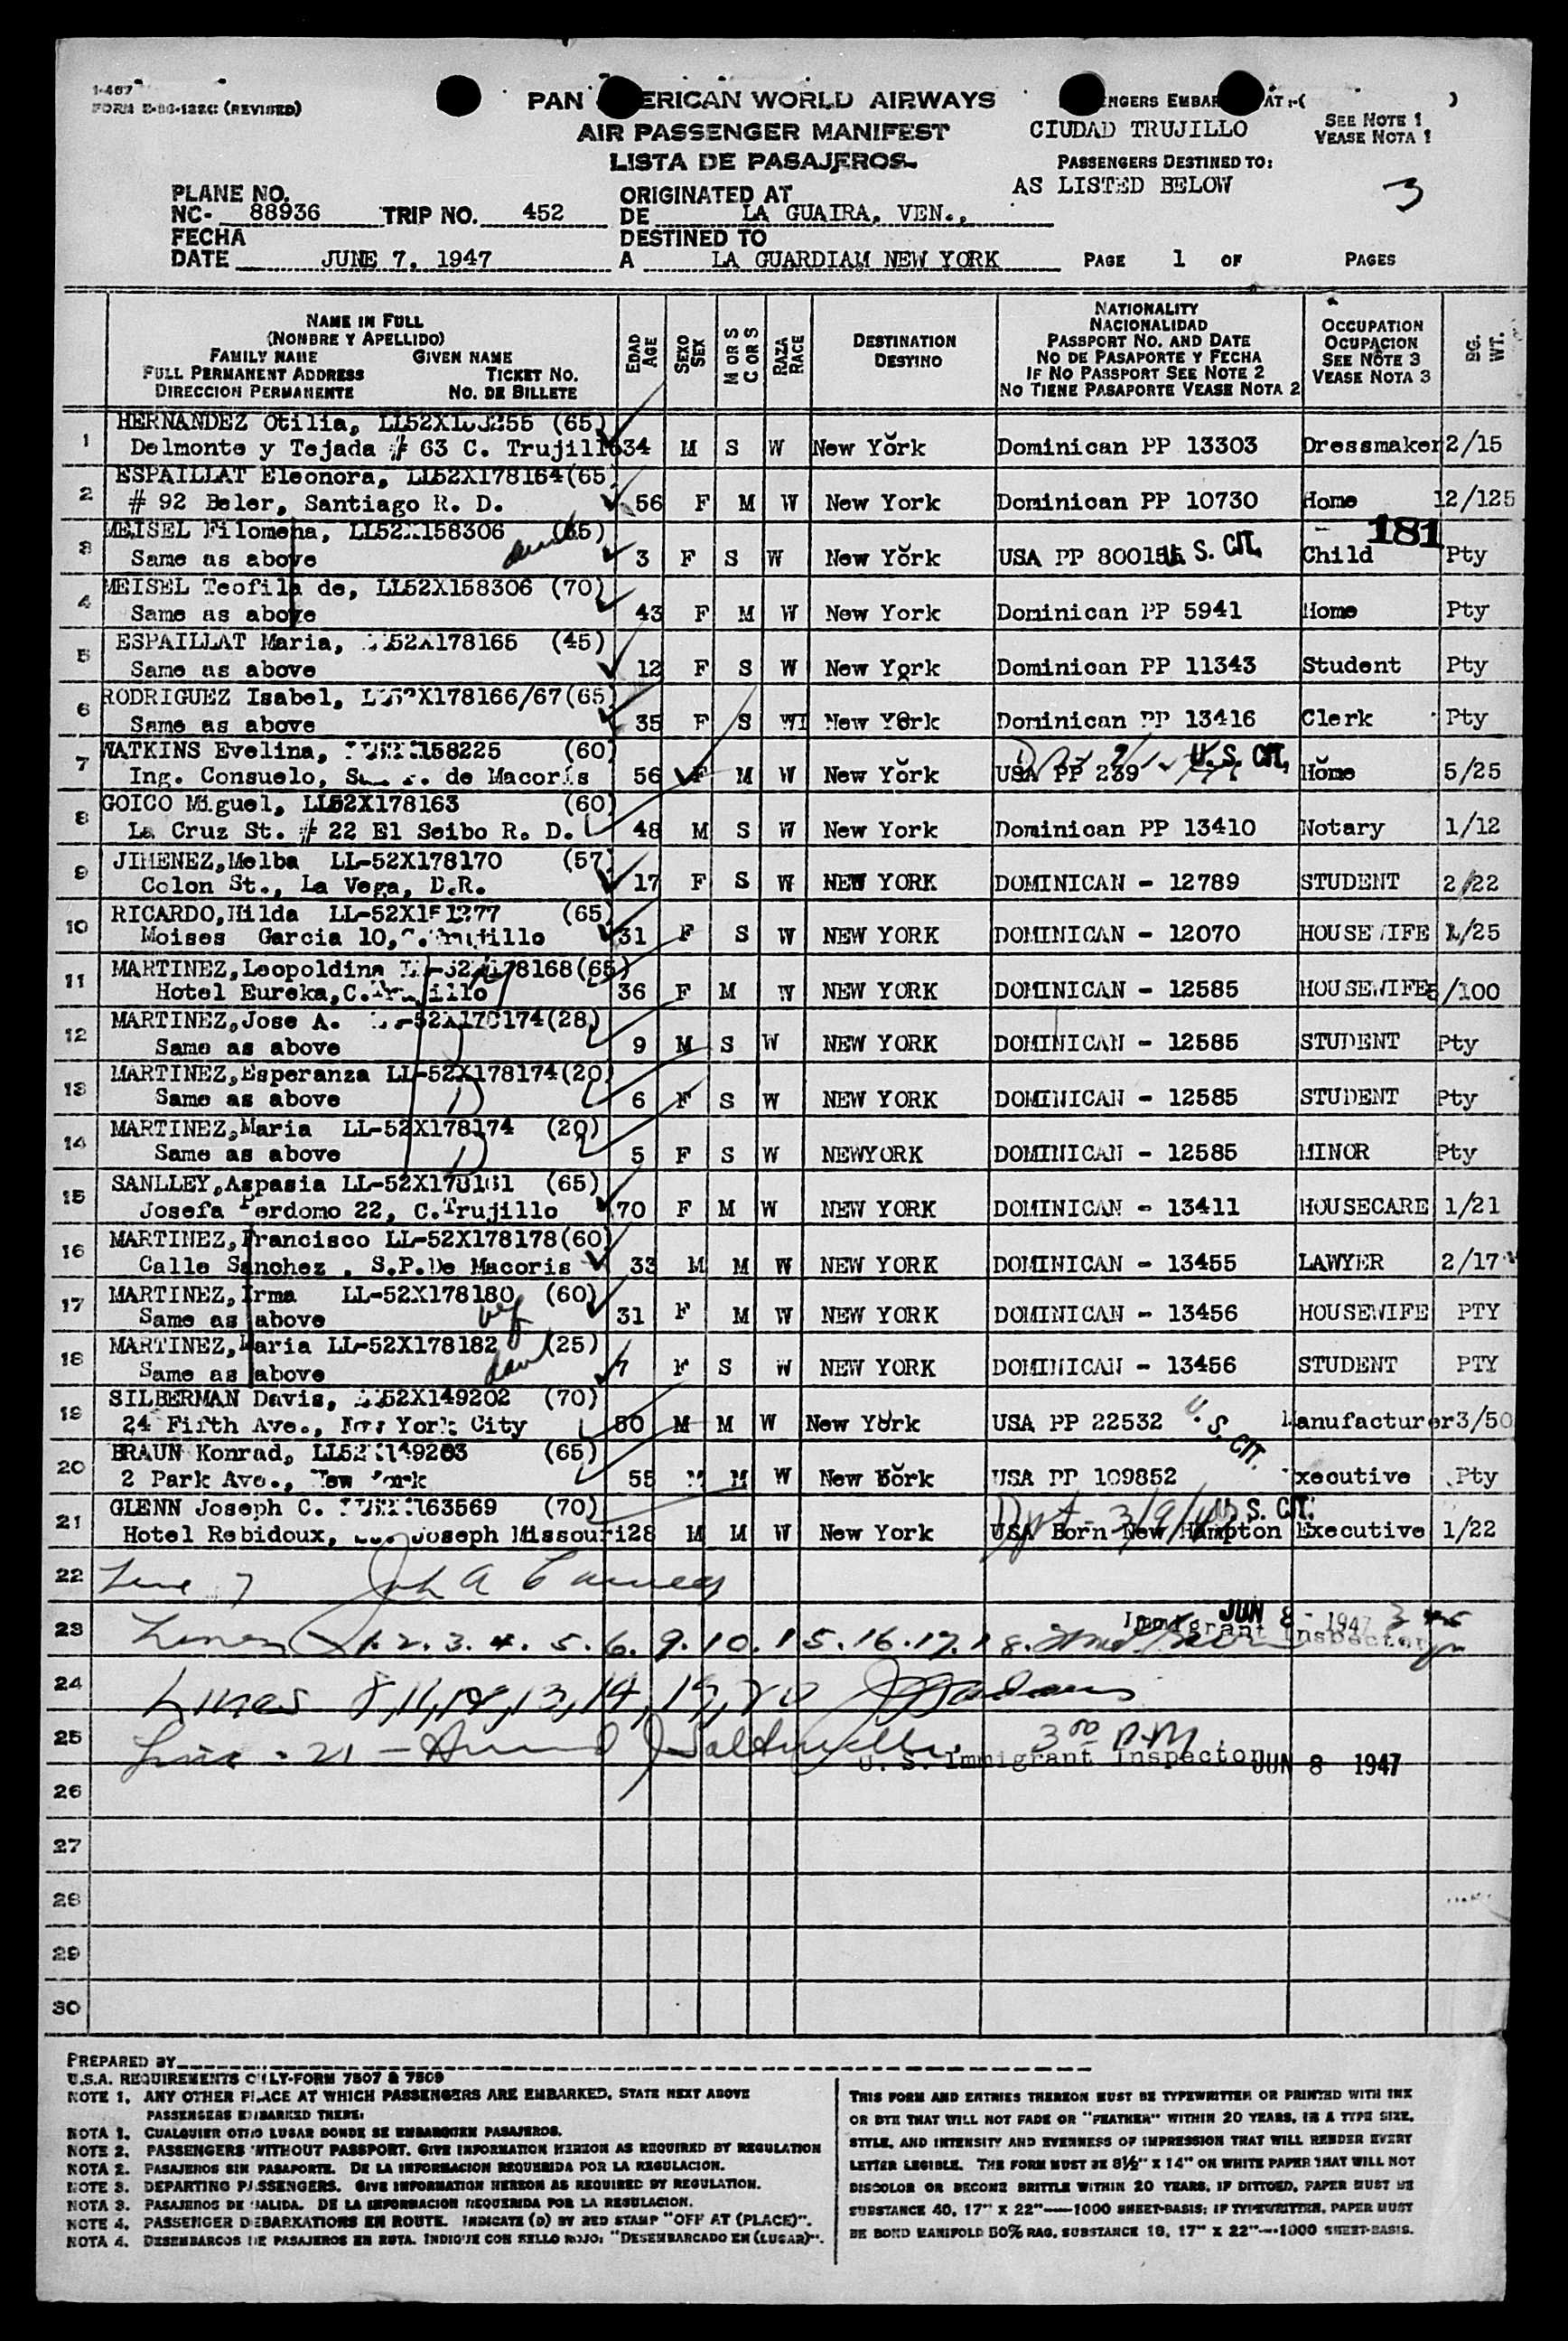 1-467
FORM E-86-122C (REVISED)
PAN ERICAN WORLD AIRWAYS
AIR PASSENGER MANIFEST
LISTA DE PASAJEROS
ENGERS EMBAR AT :-( )
CIUDAD TRUJILLO
SEE NOTE 1
VEASE NOTA 1
PASSENGERS DESTINED TO:
AS LISTED BELOW
3
PLANE NO.
NC- 88936 TRIP NO. 452
FECHA
DATE JUNE 7, 1947
ORIGINATED AT
DE LA GUAIRA, VEN.,
DESTINED TO
A LA GUARDIAM NEW YORK
PAGE 1 OF PAGES
NAME IN FULL
(NOMBRE Y APELLIDO)
FAMILY NAME GIVEN NAME
FULL PERMANENT ADDRESS TICKET NO.
DIRECCION PERMANENTE NO. DE BILLETE
EDAD
AGE
SEXO
SEX
M OR S
C OR S
RAZA
RACE
DESTINATION
DESTINO
NATIONALITY
NACIONALIDAD
PASSPORT NO. AND DATE
NO DE PASAPORTE Y FECHA
IF NO PASSPORT SEE NOTE 2
NO TIENE PASAPORTE VEASE NOTA 2
OCCUPATION
OCUPACION
SEE NOTE 3
VEASE NOTA 3
BG.
WT.
1 HERNANDEZ Otilia, (65)
Delmonte y Tejada # 63 C. Trujillo 34 M S W New York Dominican PP 13303 Dressmaker 2/15
2 ESPAILLAT Eleonora, LL52X178164 (65)
# 92 Beler, Santiago R. D. 56 F M W New York Dominican PP 10730 Home 12/125
181
3 MEISEL Filomena, LL52X158306 (65)
Same as above 3 F S W New York USA PP U. S. CIT. Child Pty
4 MEISEL Teofila de, LL52X158306 (70)
Same as above 43 F M W New York Dominican PP 5941 Home Pty
5 ESPAILLAT Maria, LL52X178165 (45)
Same as above 12 F S W New York Dominican PP 11343 Student Pty
6 RODRIGUEZ Isabel, LL52X178166/67 (65)
Same as above 35 F S WI New York Dominican PP 13416 Clerk Pty
7 WATKINS Evelina, 158225 (60)
Ing. Consuelo, de Macoris 56 F M W New York USA PP 239 U. S. CIT. Home 5/25
8 GOICO Miguel, LL52X178163 (60)
La Cruz St. # 22 El Seibo R. D. 48 M S W New York Dominican PP 13410 Notary 1/12
9 JIMENEZ, Melba LL-52X178170 (57)
Colon St., La Vega, D.R. 17 F S W NEW YORK DOMINICAN - 12789 STUDENT 2/22
10 RICARDO, Hilda (65)
Moises Garcia 10, C.Trujillo 31 F S W NEW YORK DOMINICAN - 12070 HOUSEWIFE 1/25
11 MARTINEZ, Leopoldina LL-52X178168 (65)
Hotel Eureka, C.Trujillo 36 F M W NEW YORK DOMINICAN - 12585 HOUSEWIFE /100
12 MARTINEZ, Jose A. LL-52X178174 (28)
Same as above 9 M S W NEW YORK DOMINICAN - 12585 STUDENT Pty
13 MARTINEZ, Esperanza LL-52X178174 (20)
Same as above 6 F S W NEW YORK DOMINICAN - 12585 STUDENT Pty
14 MARTINEZ, Maria LL-52X178174 (20)
Same as above 5 F S W NEWYORK DOMINICAN - 12585 MINOR Pty
15 SANLLEY, Aspasia (65)
Josefa Perdomo 22, C.Trujillo 70 F M W NEW YORK DOMINICAN - 13411 HOUSECARE 1/21
16 MARTINEZ, Francisco LL-52X178178 (60)
Calle Sanchez , S.P.De Macoris 33 M M W NEW YORK DOMINICAN - 13455 LAWYER 2/17
17 MARTINEZ, Irma LL-52X178180 (60)
Same as above 31 F M W NEW YORK DOMINICAN - 13456 HOUSEWIFE PTY
18 MARTINEZ, Maria LL-52X178182 (25)
Same as above 7 F S W NEW YORK DOMINICAN - 13456 STUDENT PTY
19 SILBERMAN Davis, LL52X149202 (70)
24 Fifth Ave., New York City 50 M M W New York USA PP 22532 U. S. CIT. Manufacturer 3/50
20 BRAUN Konrad, (65)
2 Park Ave., New York 55 M M W New York USA PP 109852 Executive Pty
21 GLENN Joseph C. 163569 (70)
Hotel Robidoux, Joseph Missouri 28 M M W New York USA Born New Hampton U. S. CIT. Executive 1/22
22 Line 7
23 Lines 1. 2. 3. 4. 5. 6. 9. 10. 15. 16. 17. 18. Immigrant Inspector JUN 8 - 1947
24 Lines 8, 11, 12, 13, 14, 19, 20
25 Line - 21 - 3 00 P.M.
U. S. Immigrant Inspector JUN 8 1947
26
27
28
29
30
PREPARED BY
U.S.A. REQUIREMENTS ONLY-FORM 7507 & 7509
NOTE 1. ANY OTHER PLACE AT WHICH PASSENGERS ARE EMBARKED, STATE NEXT ABOVE
PASSENGERS EMBARKED THERE:
NOTA 1. CUALQUIER OTRO LUGAR DONDE SE EMBARQUEN PASAJEROS.
NOTE 2. PASSENGERS WITHOUT PASSPORT. GIVE INFORMATION HEREON AS REQUIRED BY REGULATION
NOTA 2. PASAJEROS SIN PASAPORTE. DE LA INFORMACION REQUERIDA POR LA REGULACION.
NOTE 3. DEPARTING PASSENGERS. GIVE INFORMATION HEREON AS REQUIRED BY REGULATION.
NOTA 3. PASAJEROS DE SALIDA. DE LA INFORMACION REQUERIDA POR LA REGULACION.
NOTE 4. PASSENGER DEBARKATIONS EN ROUTE. INDICATE (D) BY RED STAMP "OFF AT (PLACE)".
NOTA 4. DESEMBARCOS DE PASAJEROS EN RUTA. INDIQUE CON SELLO ROJO: "DESEMBARCADO EN (LUGAR)".
THIS FORM AND ENTRIES THEREON MUST BE TYPEWRITTEN OR PRINTED WITH INK
OR DYE THAT WILL NOT FADE OR "FEATHER" WITHIN 20 YEARS, IN A TYPE SIZE,
STYLE, AND INTENSITY AND EVENNESS OF IMPRESSION THAT WILL RENDER EVERY
LETTER LEGIBLE. THE FORM MUST BE 8½" X 14" ON WHITE PAPER THAT WILL NOT
DISCOLOR OR BECOME BRITTLE WITHIN 20 YEARS. IF DITTOED, PAPER MUST BE
SUBSTANCE 40, 17" X 22"—1000 SHEET-BASIS; IF TYPEWRITTEN, PAPER MUST
BE BOND MANIFOLD 50% RAG, SUBSTANCE 18, 17" X 22"—1000 SHEET-BASIS.